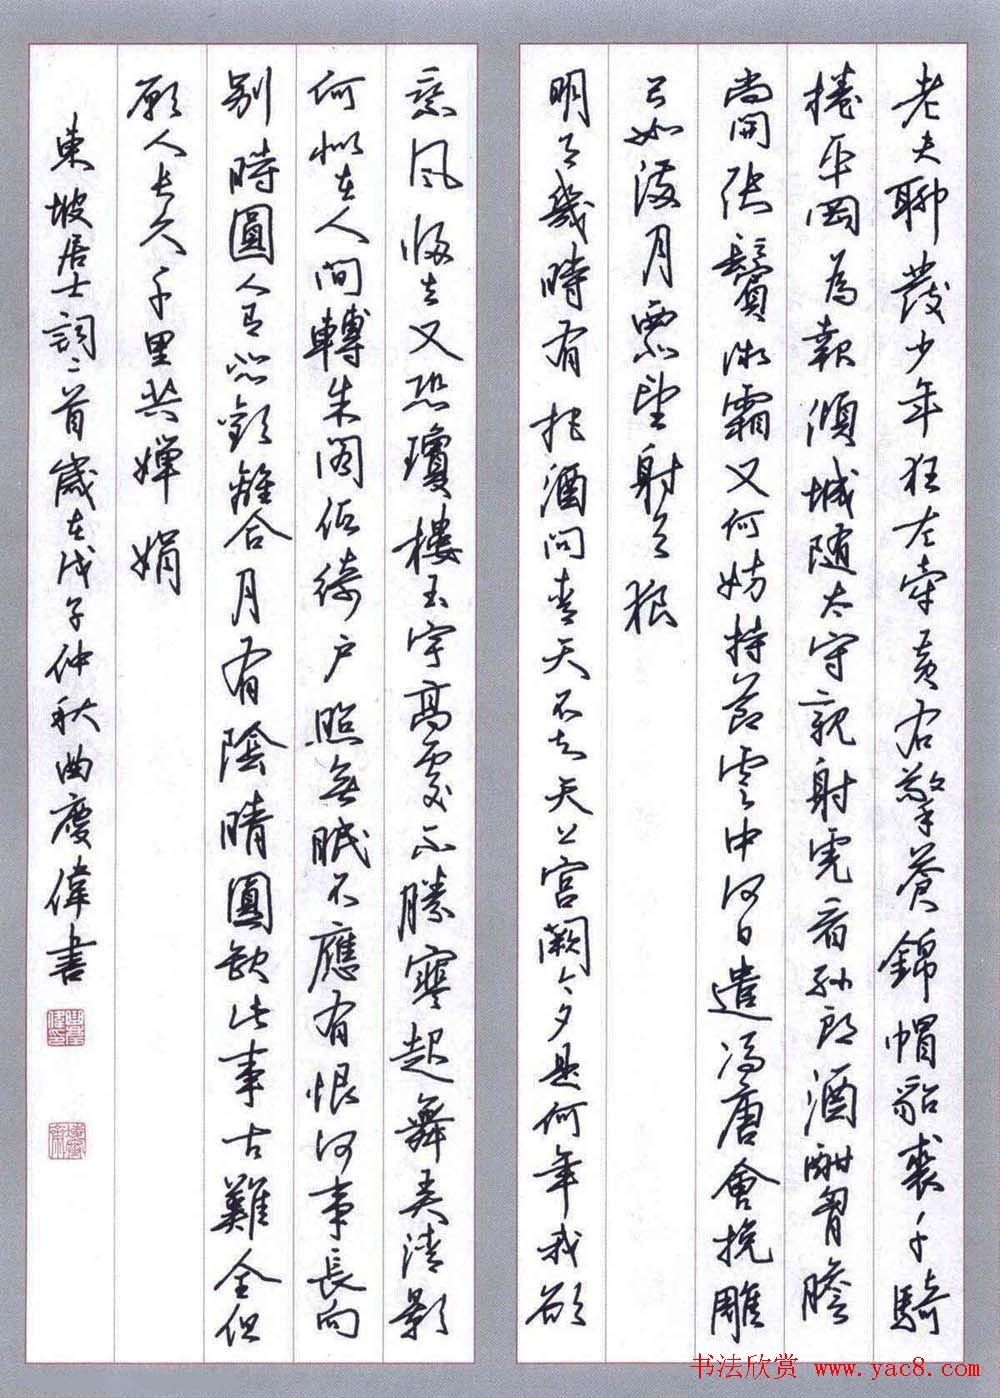 老夫聊發少年狂左牽黃右擎蒼錦帽貂裘千騎
捲平岡為報傾城隨太守親射虎看孫郎酒酣胸膽
尚開張鬢微霜又何妨持節雲中何日遣馮唐會挽雕
弓如滿月西北望射天狼
明月幾時有把酒問青天不知天上宮闕今夕是何年我欲
乘風歸去又恐瓊樓玉宇高處不勝寒起舞弄清影
何似在人間轉朱閣低綺戶照無眠不應有恨何事長向
別時圓人有悲歡離合月有陰晴圓缺此事古難全但
願人長久千里共嬋娟
東坡居士詞二首歲在戊子仲秋曲慶偉書
书法欣赏 www.yac8.com